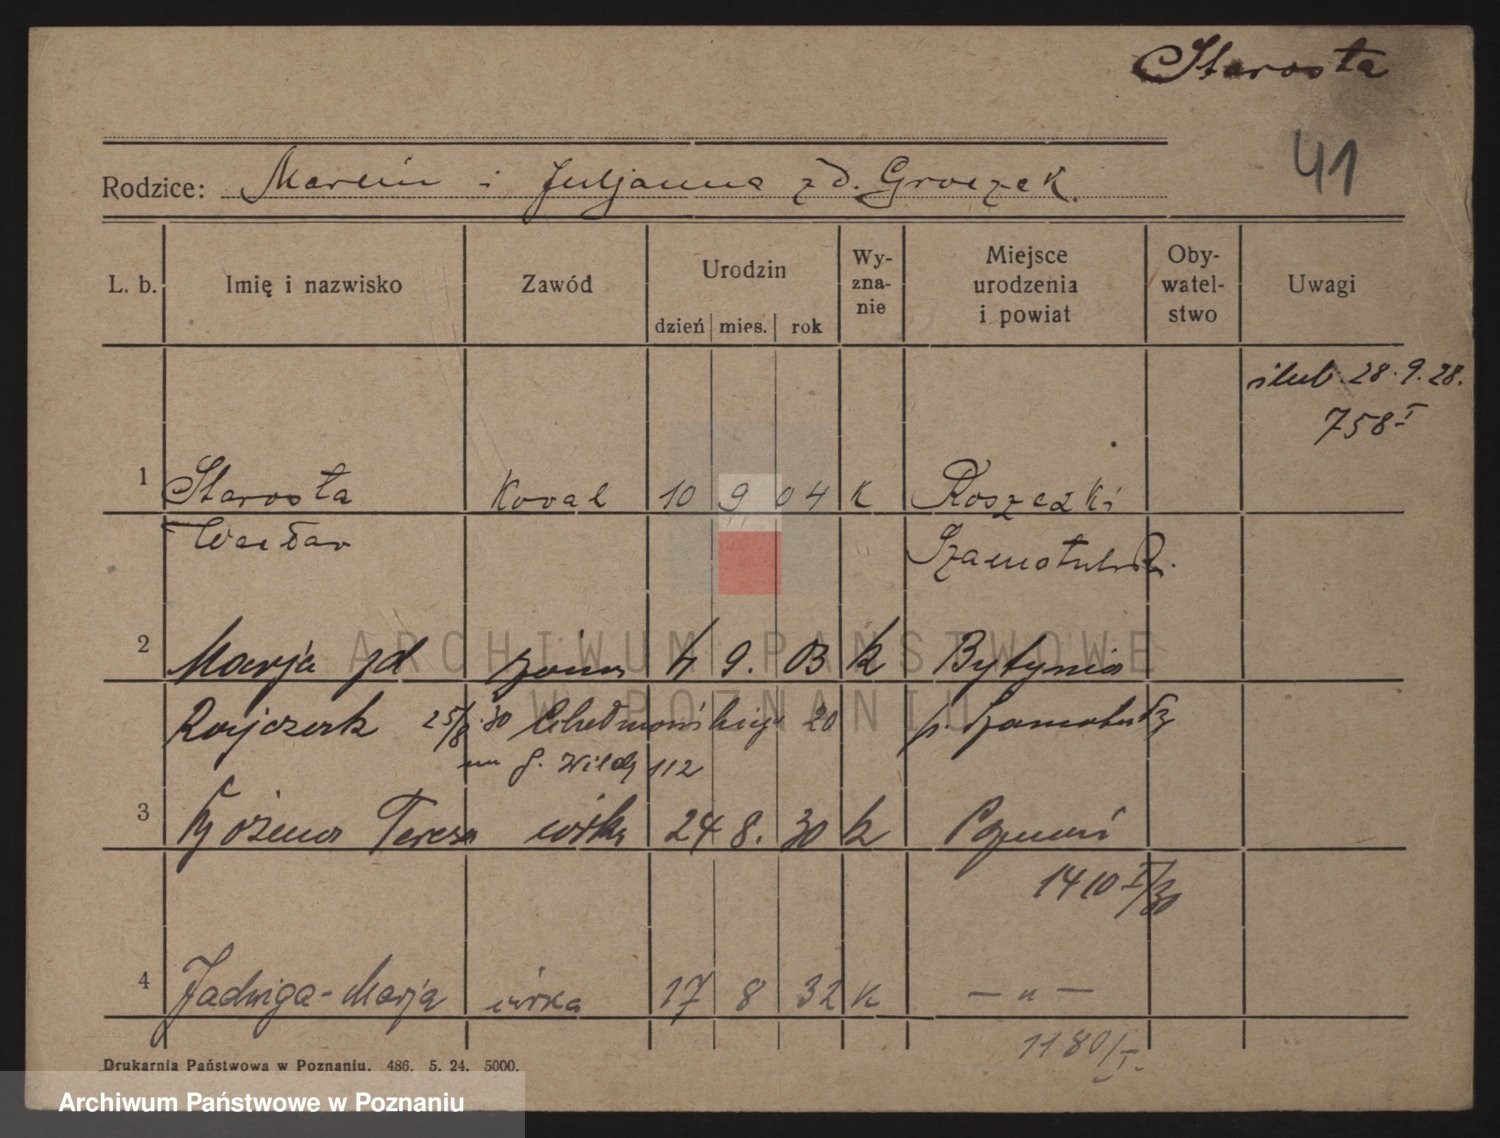 Starosta
41
Rodzice: Marcin i Juljanna zd. Groczek.
L. b. Imię i nazwisko Zawód Urodzin dzień mies. rok Wy-zna-nie Miejsce urodzenia i powiat Oby-watel-stwo Uwagi
ślub 28.9.28.
758 I
1 Starosta Koval 10 9 04 K Roszczki
Wacław Szamotulski
2 Marja zd żona 4 9. 03 k Bytynia
Rajczak 25/8 30 20 p. Szamotuły
G. Wildy 112
3 Bożena Teresa córka 24 8. 30 k Poznań
1410 I/30
4 Jadwiga-Marja córka 17 8 32 k — " —
1180/I.
Drukarnia Państwowa w Poznaniu. 486. 5. 24. 5000.
ARCHIWUM PAŃSTWOWE
W POZNANIU
Archiwum Państwowe w Poznaniu